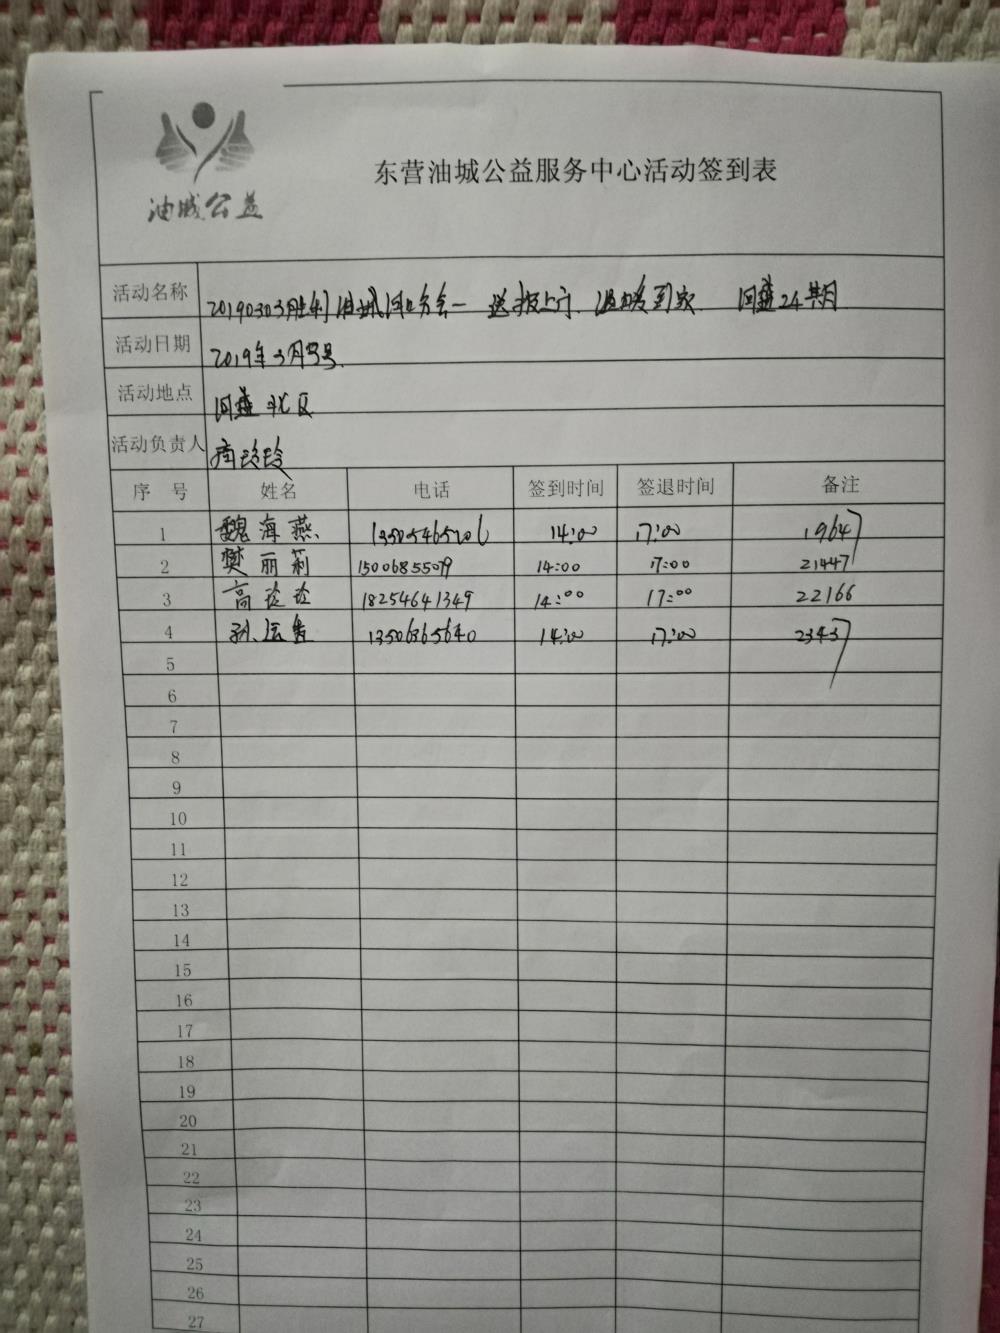 油城公益
东营油城公益服务中心活动签到表
活动名称 20190303胜利油城 送报上门 温暖到家 24期
活动日期 2019年3月3号
活动地点
活动负责人
序 号 姓名 电话 签到时间 签退时间 备注
1 魏海燕 14:00 17:00 19647
2 樊丽莉 15006855079 14:00 17:00 21447
3 高玲玲 18254641349 14:00 17:00 22166
4 孙 13506365640 14:00 17:00 23437
5
6
7
8
9
10
11
12
13
14
15
16
17
18
19
20
21
22
23
24
25
26
27